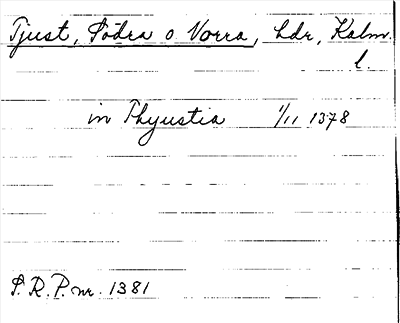 Tjust, Södra o Norra, hdr, Kalm.
l.
in Thyustia 1/11 1378
S.R.P. nr. 1381